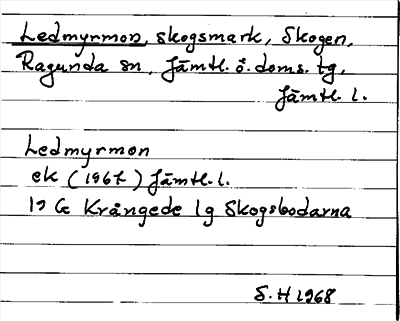 Ledmyrmon, skogsmark, Skogen,
Ragunda sn, Jämtl. ö. doms. tg,
Jämtl. l.
Ledmyrmon
ek (1967) Jämtl. l.
19 G Krångede lg Skogsbodarna
S. H 1968